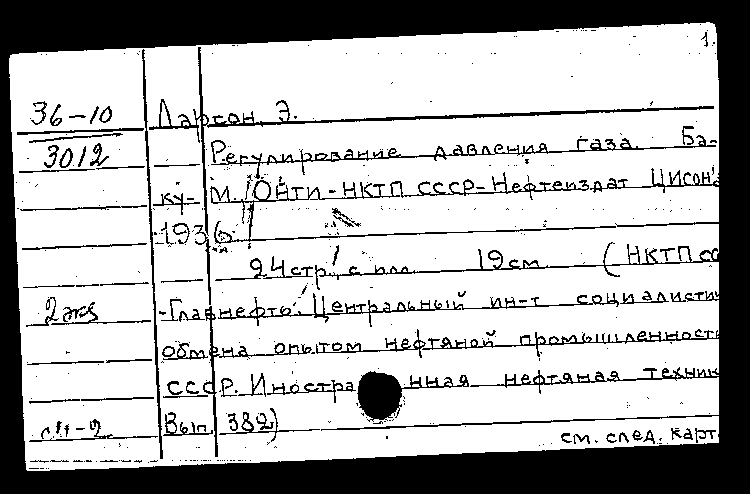 1.
36-10 Ларсон, Э.
3012 Регулирование давления газа. Ба-
ку- М. ОНТИ-НКТП СССР-Нефтеиздат ЦИСОН
1936
24стр., с илл. 19см (НКТП сс
2 экз -Главнефть. Центральный ин-т социалистич
обмена опытом нефтяной промышленност
СССР. Иностранная нефтяная техник
Вып. 382)
см. след. карт.